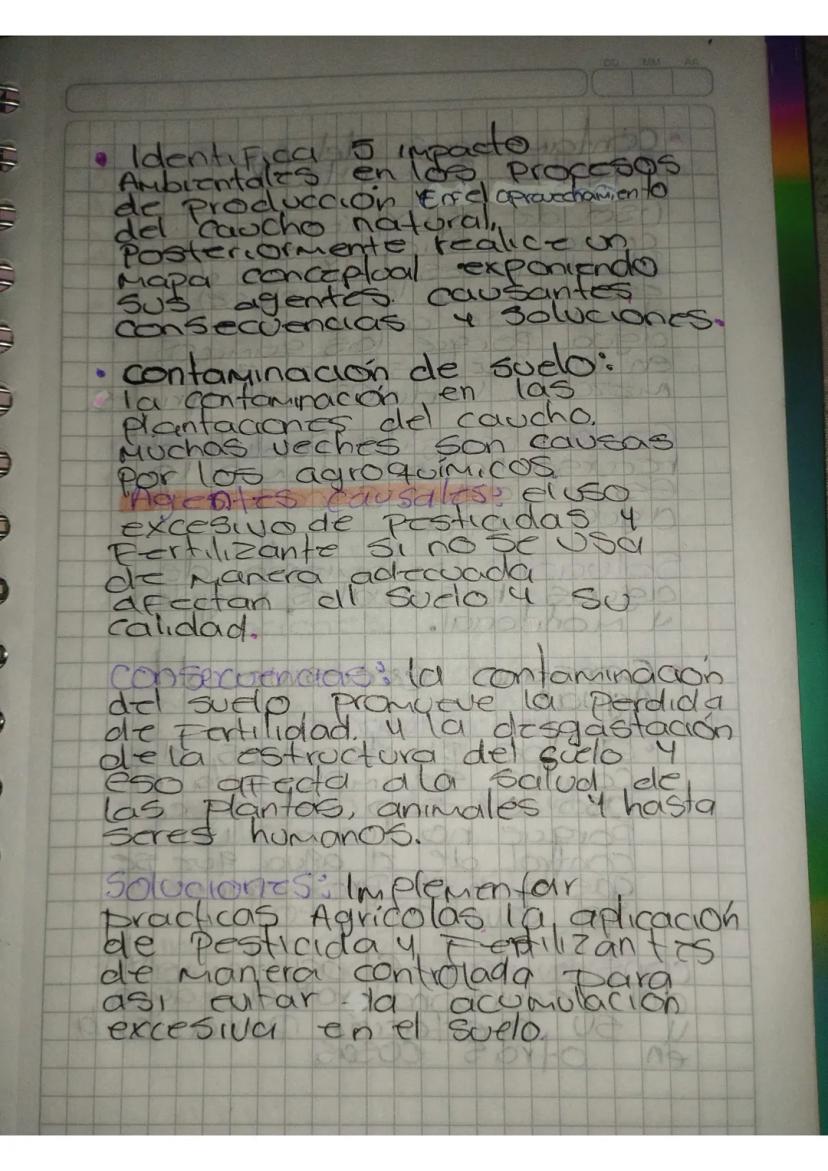 DD MM AA
• Identifica 5 impacto
Ambientales en los procesos
de producción En el aprovechamiento
del caucho natural,
Posteriormente realice un
Mapa conceptual exponiendo
sus agentes causantes,
consecuencias y soluciones.
• contaminación de suelo:
la contaminación en las
plantaciones del caucho,
Muchas veches son causas
por los agroquímicos
Agentes causales: el uso
excesivo de pesticidas y
Fertilizante si no se usa
de manera adecuada
afectan al suelo y su
calidad.
Consecuencias: la contaminación
del suelo promueve la perdida
de Fertilidad. y la desgastación
de la estructura del suelo y
eso affecta a la salud de
las plantas, animales y hasta
seres humanos.
Soluciones: Implementar
practicas Agrícolas la aplicación
de Pesticida y Fertilizantes
de manera controlada para
asi evitar la acumulación
excesiva en el suelo.